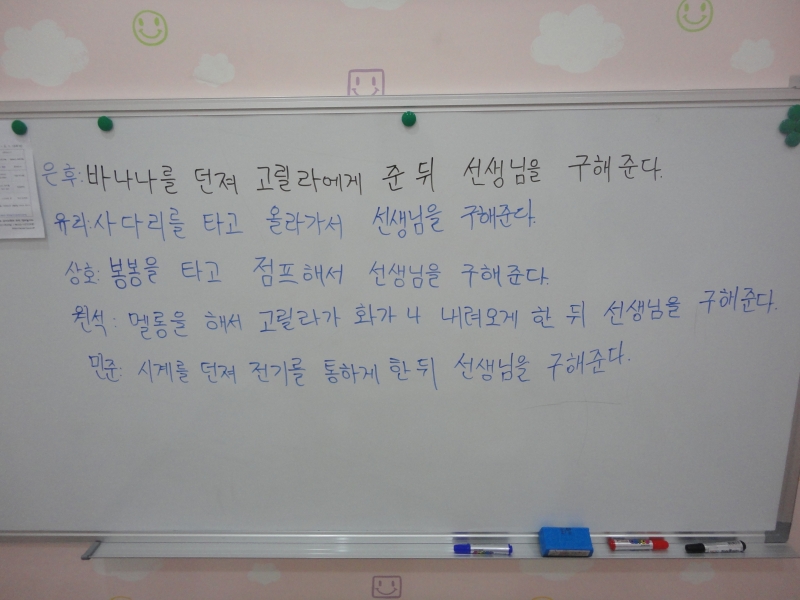 은후: 바나나를 던져 고릴라에게 준 뒤 선생님을 구해준다.
유리: 사다리를 타고 올라가서 선생님을 구해준다.
상호: 봉봉을 타고 점프해서 선생님을 구해준다.
원석: 멜롱을 해서 고릴라가 화가 나 내려오게 한 뒤 선생님을 구해준다.
민준: 시계를 던져 전기를 통하게 한 뒤 선생님을 구해준다.